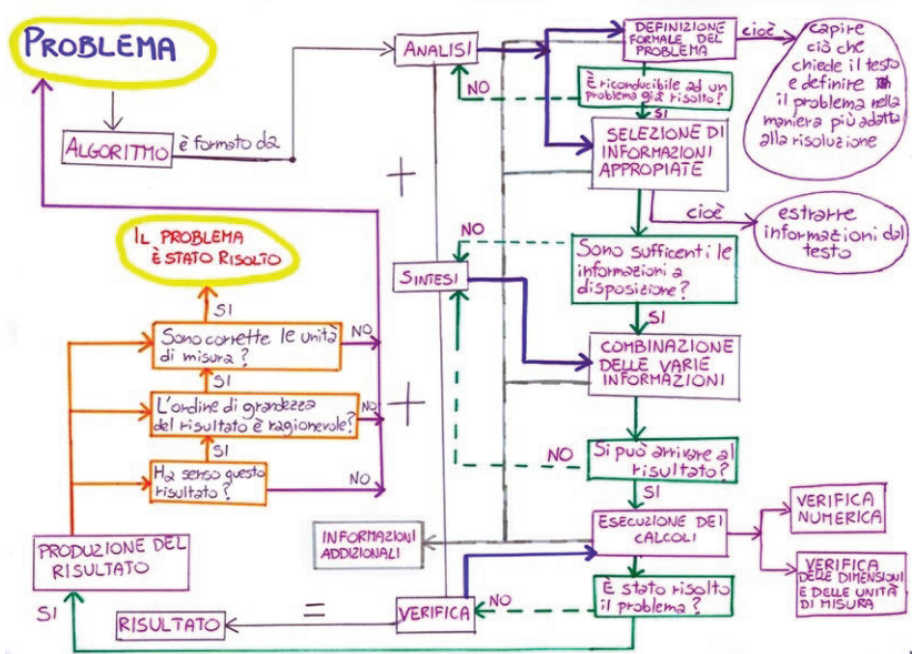 PROBLEMA
ALGORITMO
è formato da
ANALISI
DEFINIZIONE
FORMALE DEL
PROBLEMA
cioè
capire
ciò che
chiede il testo
e definire
il problema nella
maniera più adatta
alla risoluzione
NO
È riconducibile ad un
problema già risolto?
SI
SELEZIONE DI
INFORMAZIONI
APPROPIATE
cioè
estrarre
informazioni dal
testo
+
NO
Sono sufficenti le
informazioni a
disposizione?
SI
SINTESI
COMBINAZIONE
DELLE VARIE
INFORMAZIONI
+
NO
Si può arrivare al
risultato?
SI
ESECUZIONE DEI
CALCOLI
VERIFICA
NUMERICA
VERIFICA
DELLE DIMENSIONI
E DELLE UNITÀ
DI MISURA
INFORMAZIONI
ADDIZIONALI
È stato risolto
il problema?
NO
VERIFICA
=
RISULTATO
SI
PRODUZIONE DEL
RISULTATO
Ha senso questo
risultato?
NO
SI
L'ordine di grandezza
del risultato è ragionevole?
NO
SI
Sono corrette le unità
di misura?
NO
SI
IL PROBLEMA
È STATO RISOLTO